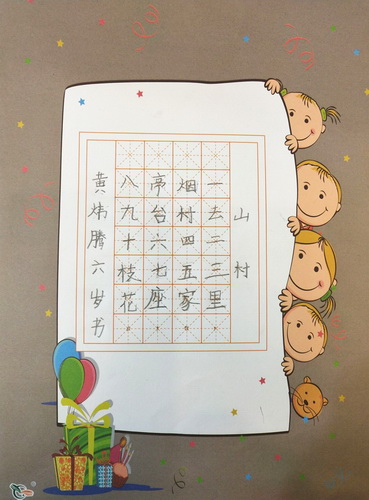 山村
一去二三里
烟村四五家
亭台六七座
八九十枝花
黄炜腾六岁书